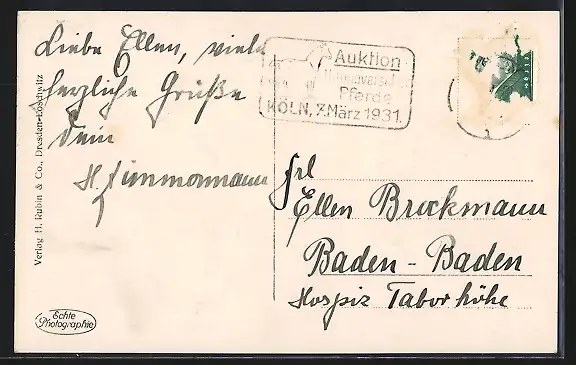 Liebe Ellen, viele
herzliche Grüße
Dein
H. Zimmermann
Auktion
Hannoverscher
Pferde
KÖLN, 7. März 1931.
Frl
Ellen Brockmann
Baden-Baden
Hospiz Taborhöhe
Verlag H. Rubin & Co., Dresden-Loschwitz
Echte
Photographie